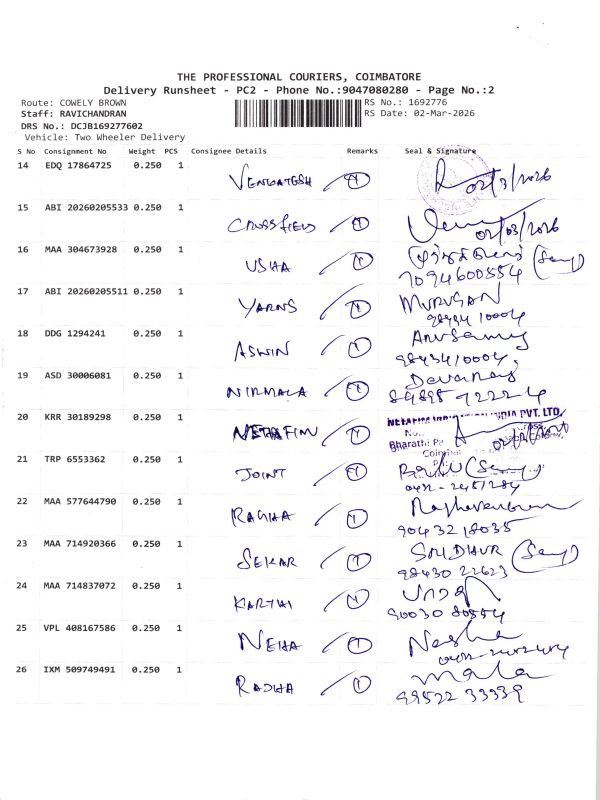 THE PROFESSIONAL COURIERS, COIMBATORE
Delivery Runsheet - PC2 - Phone No.:9047080280 - Page No.:2
Route: COWELY BROWN
RS No.: 1692776
Staff: RAVICHANDRAN
RS Date: 02-Mar-2026
DRS No.: DCJB169277602
Vehicle: Two Wheeler Delivery
S No Consignment No Weight PCS Consignee Details Remarks Seal & Signature
14 EDQ 17864725 0.250 1
VENGATESH 1 02/3/2026
15 ABI 20260205533 0.250 1
CROSSFIELD 1 02/03/2026
16 MAA 304673928 0.250 1
USHA 1
7094600554
17 ABI 20260205511 0.250 1
YARNS 1 MURUGAN
18 DDG 1294241 0.250 1
ASWIN 1
9843410004
19 ASD 30006081 0.250 1
NIRMALA 1 Devaraj
20 KRR 30189298 0.250 1
NETAFIM 1
INDIA PVT. LTD.
Bharathi
21 TRP 6553362 0.250 1
JOINT 1
22 MAA 577644790 0.250 1
RAGHA 1
90432 18035
23 MAA 714920366 0.250 1
SEKAR 1 SRIDHUR
98430 22623
24 MAA 714837072 0.250 1
KARTHI 1
90030 80554
25 VPL 408167586 0.250 1
NEHA 1
26 IXM 509749491 0.250 1
RADHA 1 Mala
99522 33339